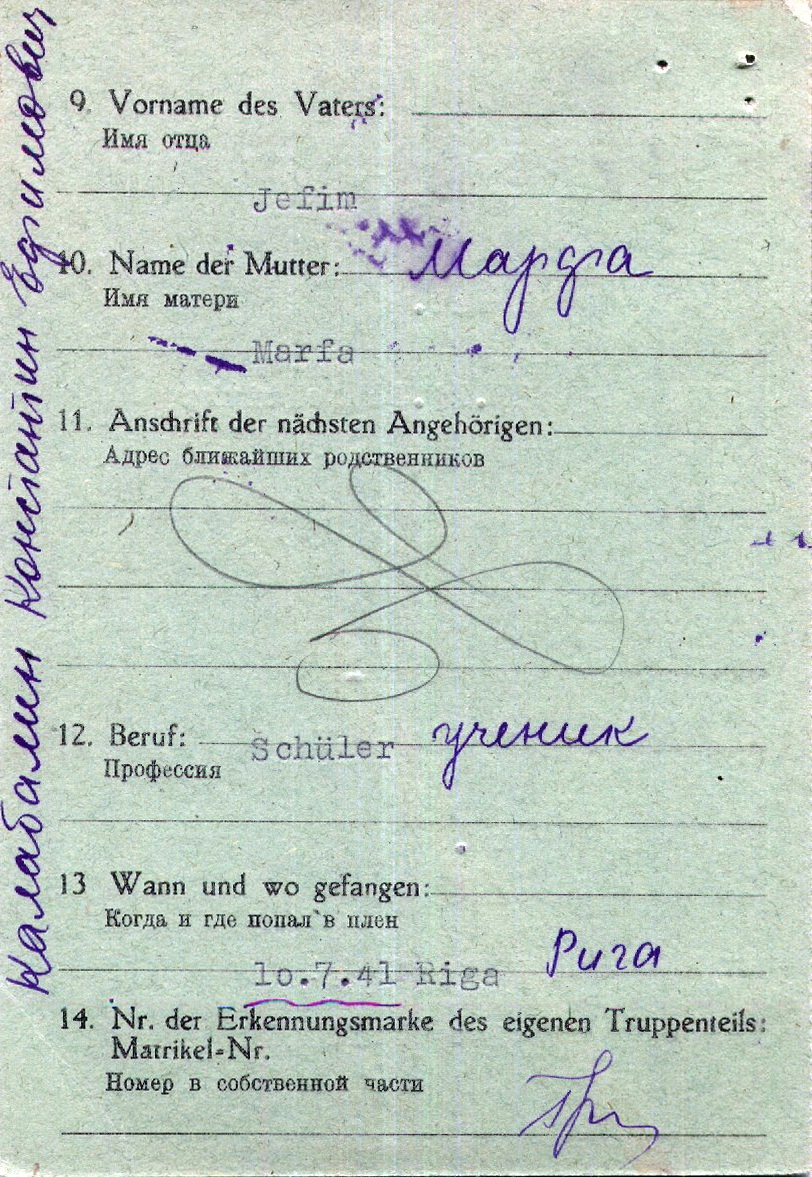 Калабалин Константин Ефимович
9. Vorname des Vaters:
Имя отца
Jefim
10. Name der Mutter: Марфа
Имя матери
Marfa
11. Anschrift der nächsten Angehörigen:
Адрес ближайших родственников
12. Beruf: Schüler ученик
Профессия
13 Wann und wo gefangen:
Когда и где попал в плен
10.7.41 Riga Рига
14. Nr. der Erkennungsmarke des eigenen Truppenteils:
Matrikel-Nr.
Номер в собственной части